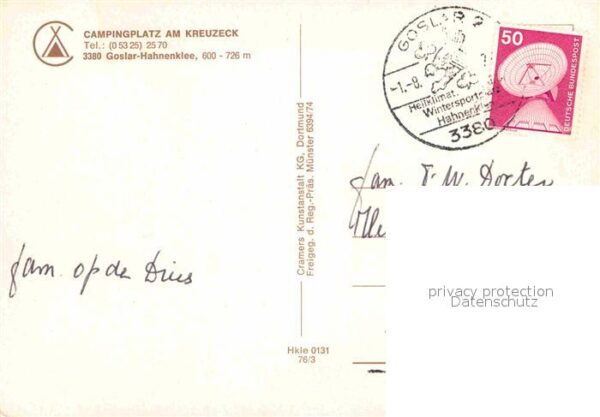 CAMPINGPLATZ AM KREUZECK
Tel.: (0 53 25) 25 70
3380 Goslar-Hahnenklee, 600 - 726 m
GOSLAR 2
-1.-8.
Heilklimat.
Wintersportplatz
Hahnenklee
3380
50
DEUTSCHE BUNDESPOST
Fam. op de
Cramers Kunstanstalt KG. Dortmund
Freigeg. d. Reg.-Präs. Münster 6394/74
Hkle 0131
76/3
Fam. T. W.
privacy protection
Datenschutz